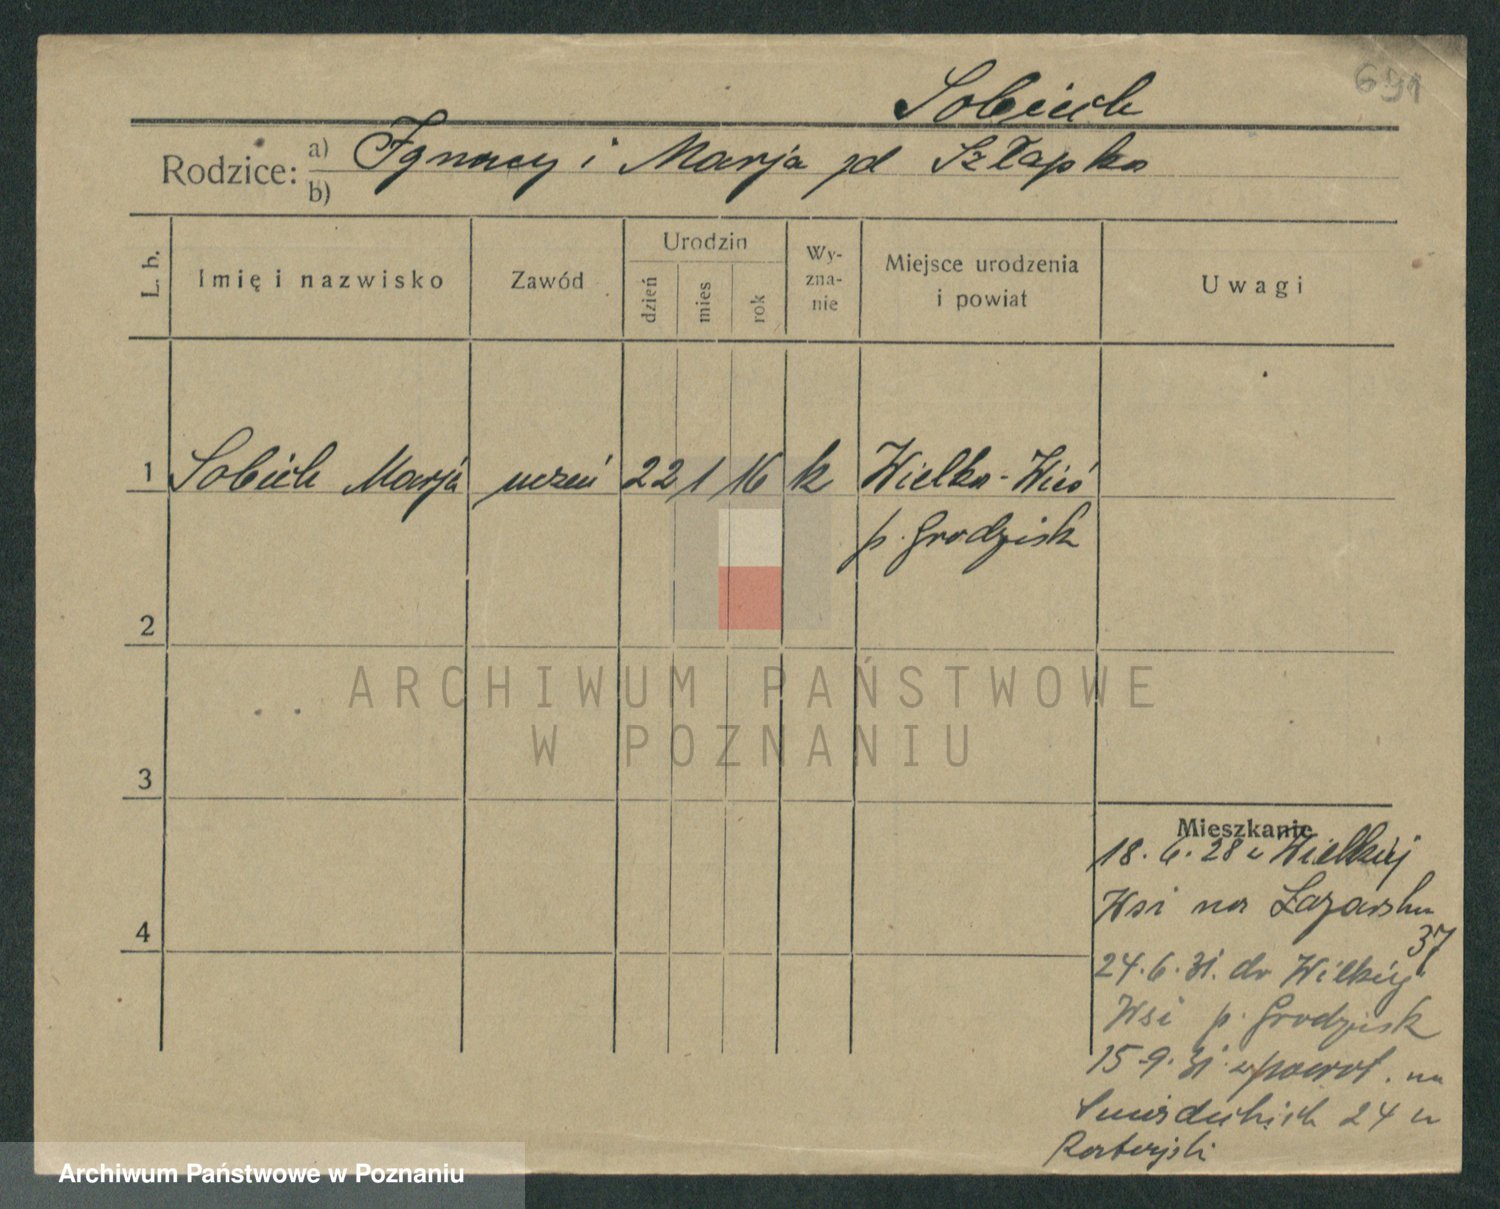 691
Sobiech
Rodzice: a) Ignacy i Marja zd Szłapka
b)
L. b.
Imię i nazwisko
Zawód
Urodzin
dzień
mies
rok
Wy-
zna-
nie
Miejsce urodzenia
i powiat
Uwagi
1 Sobiech Marja uczeń 22 1 16 k Wielka-Wieś
p. Grodzisk
2
3
4
ARCHIWUM PAŃSTWOWE
W POZNANIU
Mieszkanie
18. 6. 28 z Wielkiej
Wsi na Łazarska
37
24. 6. 31. do Wielkiej
Wsi p. Grodzisk
15. 9. 31. powrot. na
Śniadeckich 24 u
Archiwum Państwowe w Poznaniu